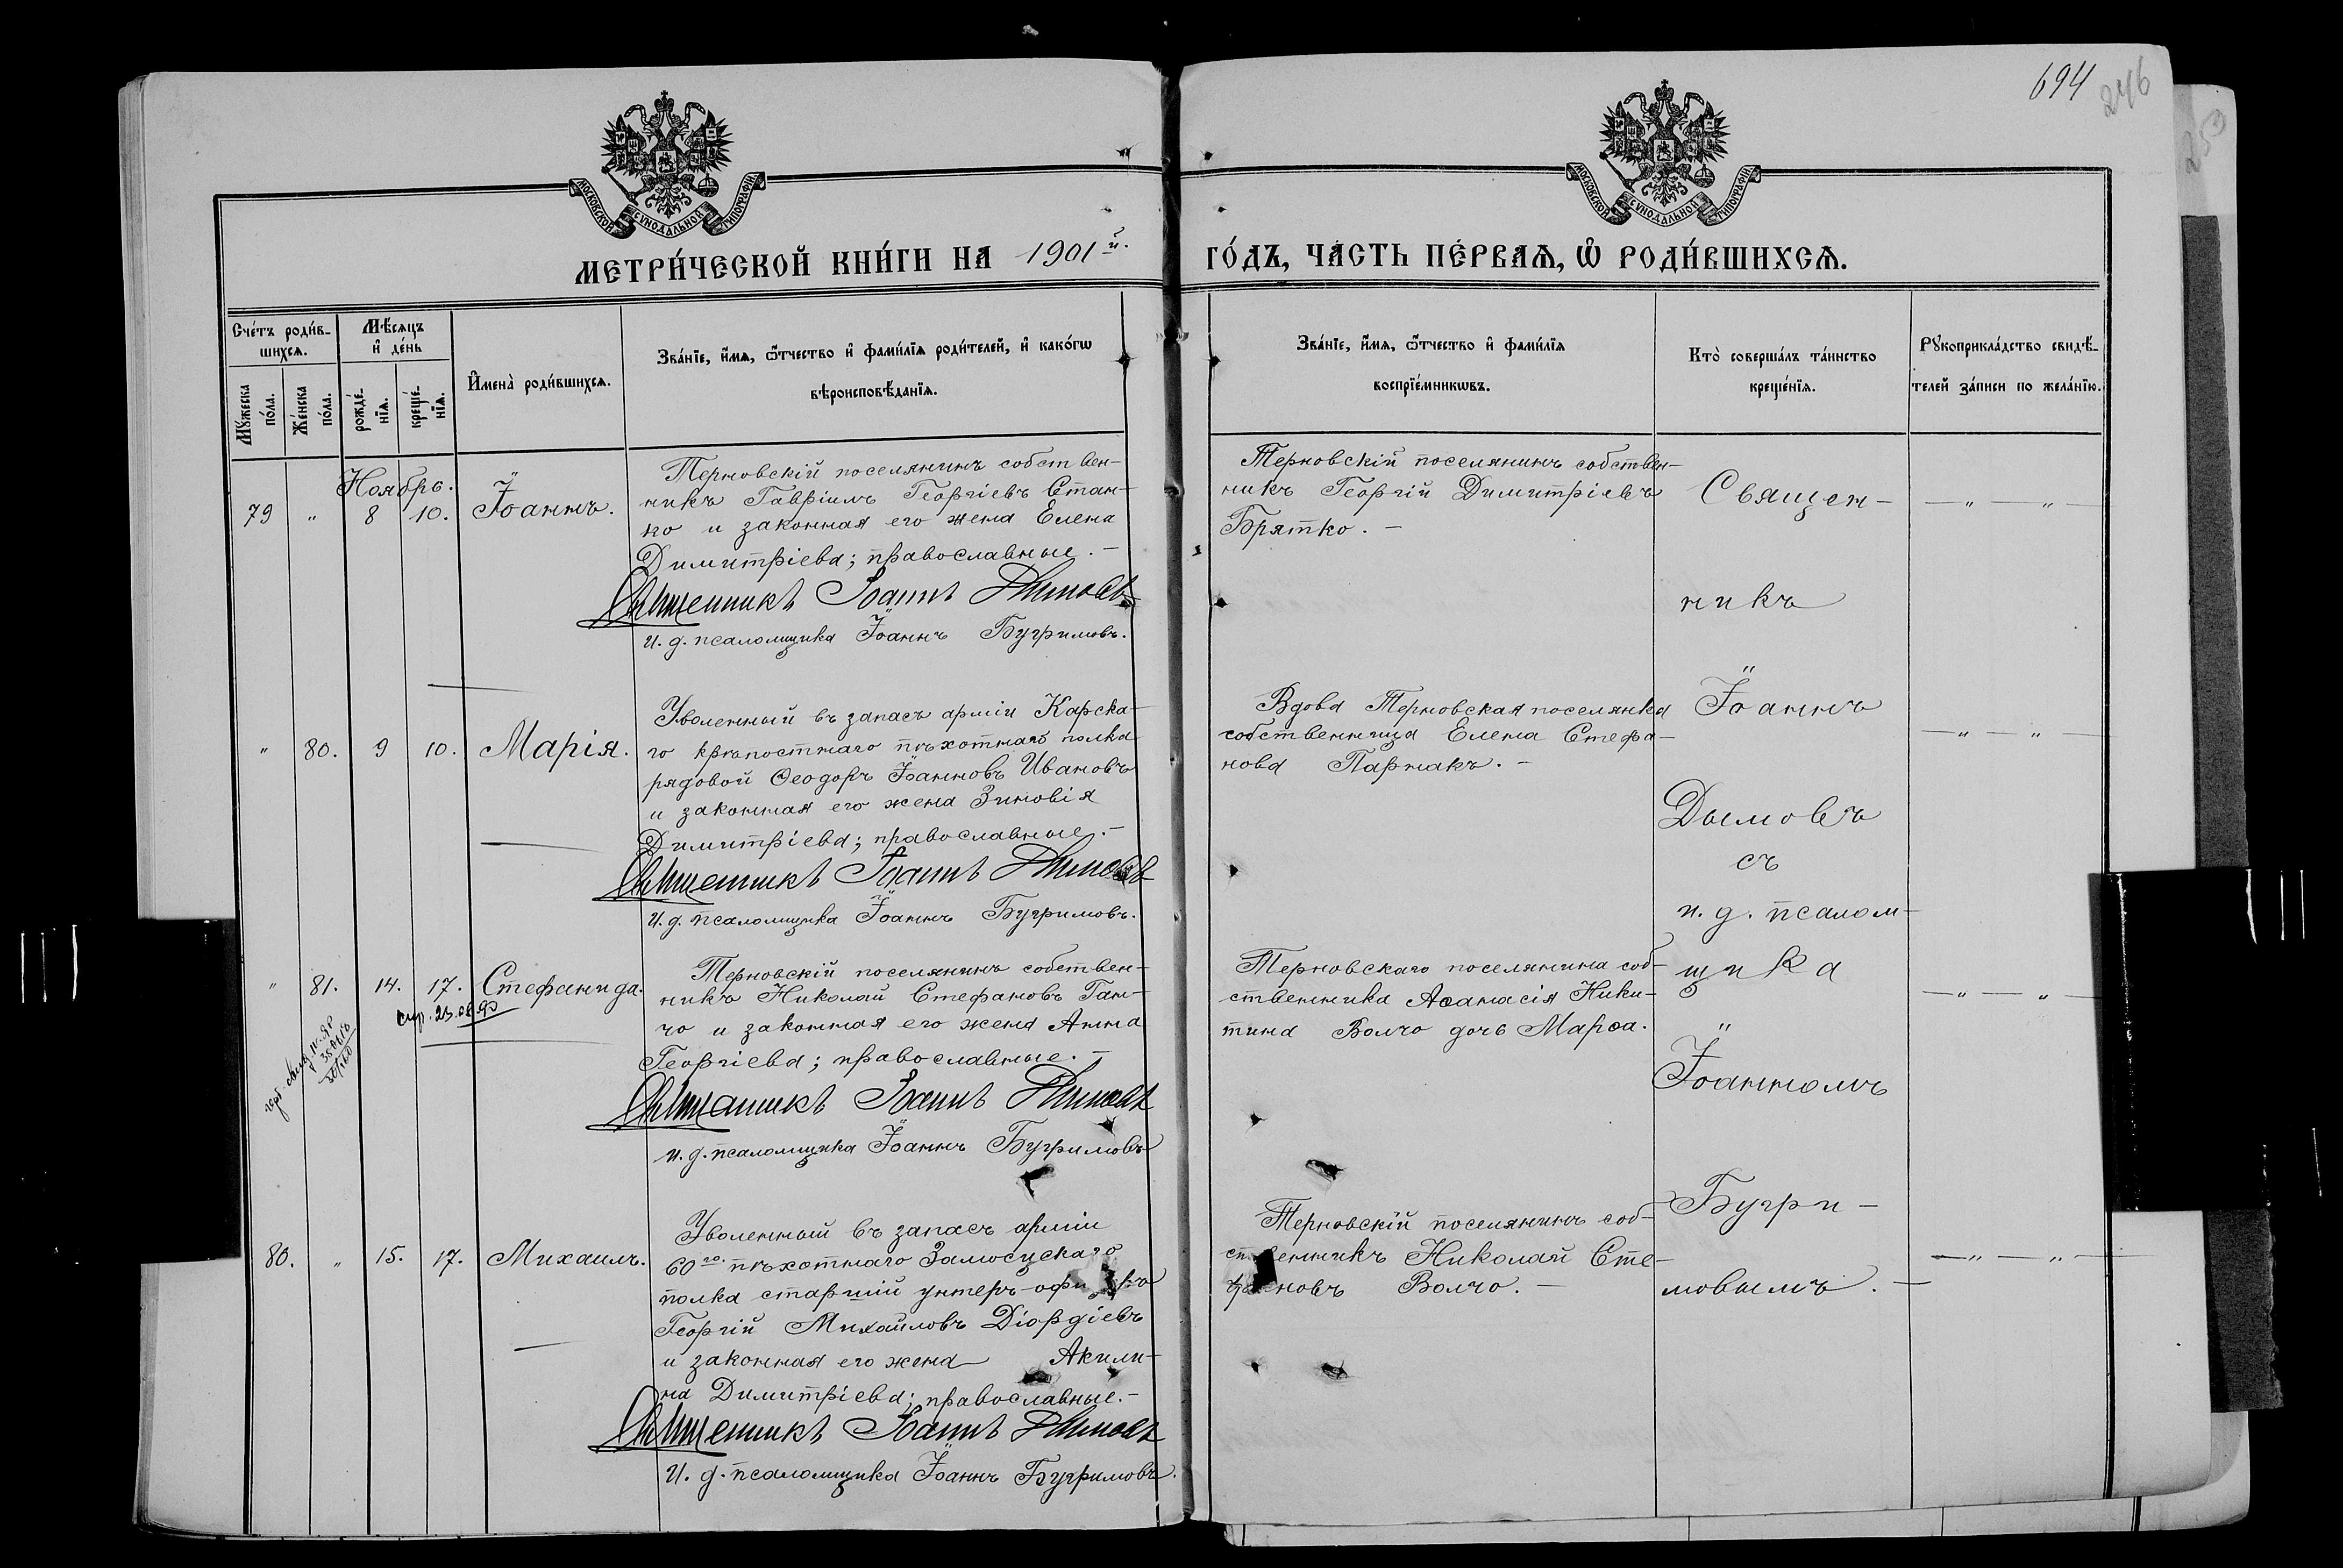 694
246
МОСКОВСКОЙ СѴНОДАЛЬНОЙ ТИПОГРАФІИ
МОСКОВСКОЙ СѴНОДАЛЬНОЙ ТИПОГРАФІИ
МЕТРИ́ЧЕСКОЙ КНИ́ГИ НА 1901й.
ГО́ДЪ, ЧА́СТЬ ПЕ́РВАѦ, Ѡ҆ РОДИ́ВШИХСѦ.
Сче́тъ роди́в-
шихсѧ.
Мꙋ́жеска по́ла.
Же́нска по́ла.
Мѣ́сѧцъ
и҆ де́нь
рожде́-
нїѧ.
креще́-
нїѧ.
И҆мена̀ роди́вшихсѧ.
Зва́нїе, и҆́мѧ, ѻ҆́тчество и҆ фами́лїѧ роди́телей, и҆ како́гѡ
вѣроисповѣ́данїѧ.
Зва́нїе, и҆́мѧ, ѻ҆́тчество и҆ фами́лїѧ
воспрїе́мникѡвъ.
Кто̀ соверша́лъ та́инство
креще́нїѧ.
Рꙋкоприкла́дство свидѣ́-
телей за́писи по жела́нїю.
Ноябрь.
79 " 8 10. Іоаннъ.
Терновскій поселянинъ собствен-
никъ Гавріилъ Георгіевъ Стан-
ко и законная его жена Елена
Димитріева; православные. -
Священникъ Іоаннъ Дымовъ
И. д. псаломщика Іоаннъ Бугримовъ.
Терновскій поселянинъ собствен-
никъ Георгій Димитріевъ
Братко. -
" 80. 9 10. Марія.
Уволенный въ запасъ арміи Карска-
го крѣпостнаго пѣхотнаго полка
рядовой Ѳеодоръ Іоанновъ Ивановъ
и законная его жена Зиновія
Димитріева; православные. -
Священникъ Іоаннъ Дымовъ
И. д. псаломщика Іоаннъ Бугримовъ.
Вдова Терновская поселянка
собственница Елена Стефа-
нова Парнакъ. -
" 81. 14. 17. Стефанида.
Терновскій поселянинъ собствен-
никъ Николай Стефановъ Ган-
чо и законная его жена Анна
Георгіева; православные. -
Священникъ Іоаннъ Дымовъ
И. д. псаломщика Іоаннъ Бугримовъ
Терновскаго поселянина соб-
ственника Аѳанасія Ники-
тина Волчо дочь Марѳа.
80. " 15. 17. Михаилъ.
Уволенный въ запасъ арміи
60го пѣхотнаго Замосцскаго
полка старшій унтеръ-офи
Георгій Михаиловъ Діордіевъ
и законная его жена Акили-
на Димитріева; православные. -
Священникъ Іоаннъ Дымовъ
И. д. псаломщика Іоаннъ Бугримовъ.
Терновскій поселянинъ соб-
ственникъ Николай Сте-
фановъ Волчо. -
Священ-
никъ
Іоаннъ
Дымовъ
съ
и. д. псалом-
щика
Іоанномъ
Бугри-
мовымъ. -
— " — " —
— " — " —
— " — " —
— " — " —